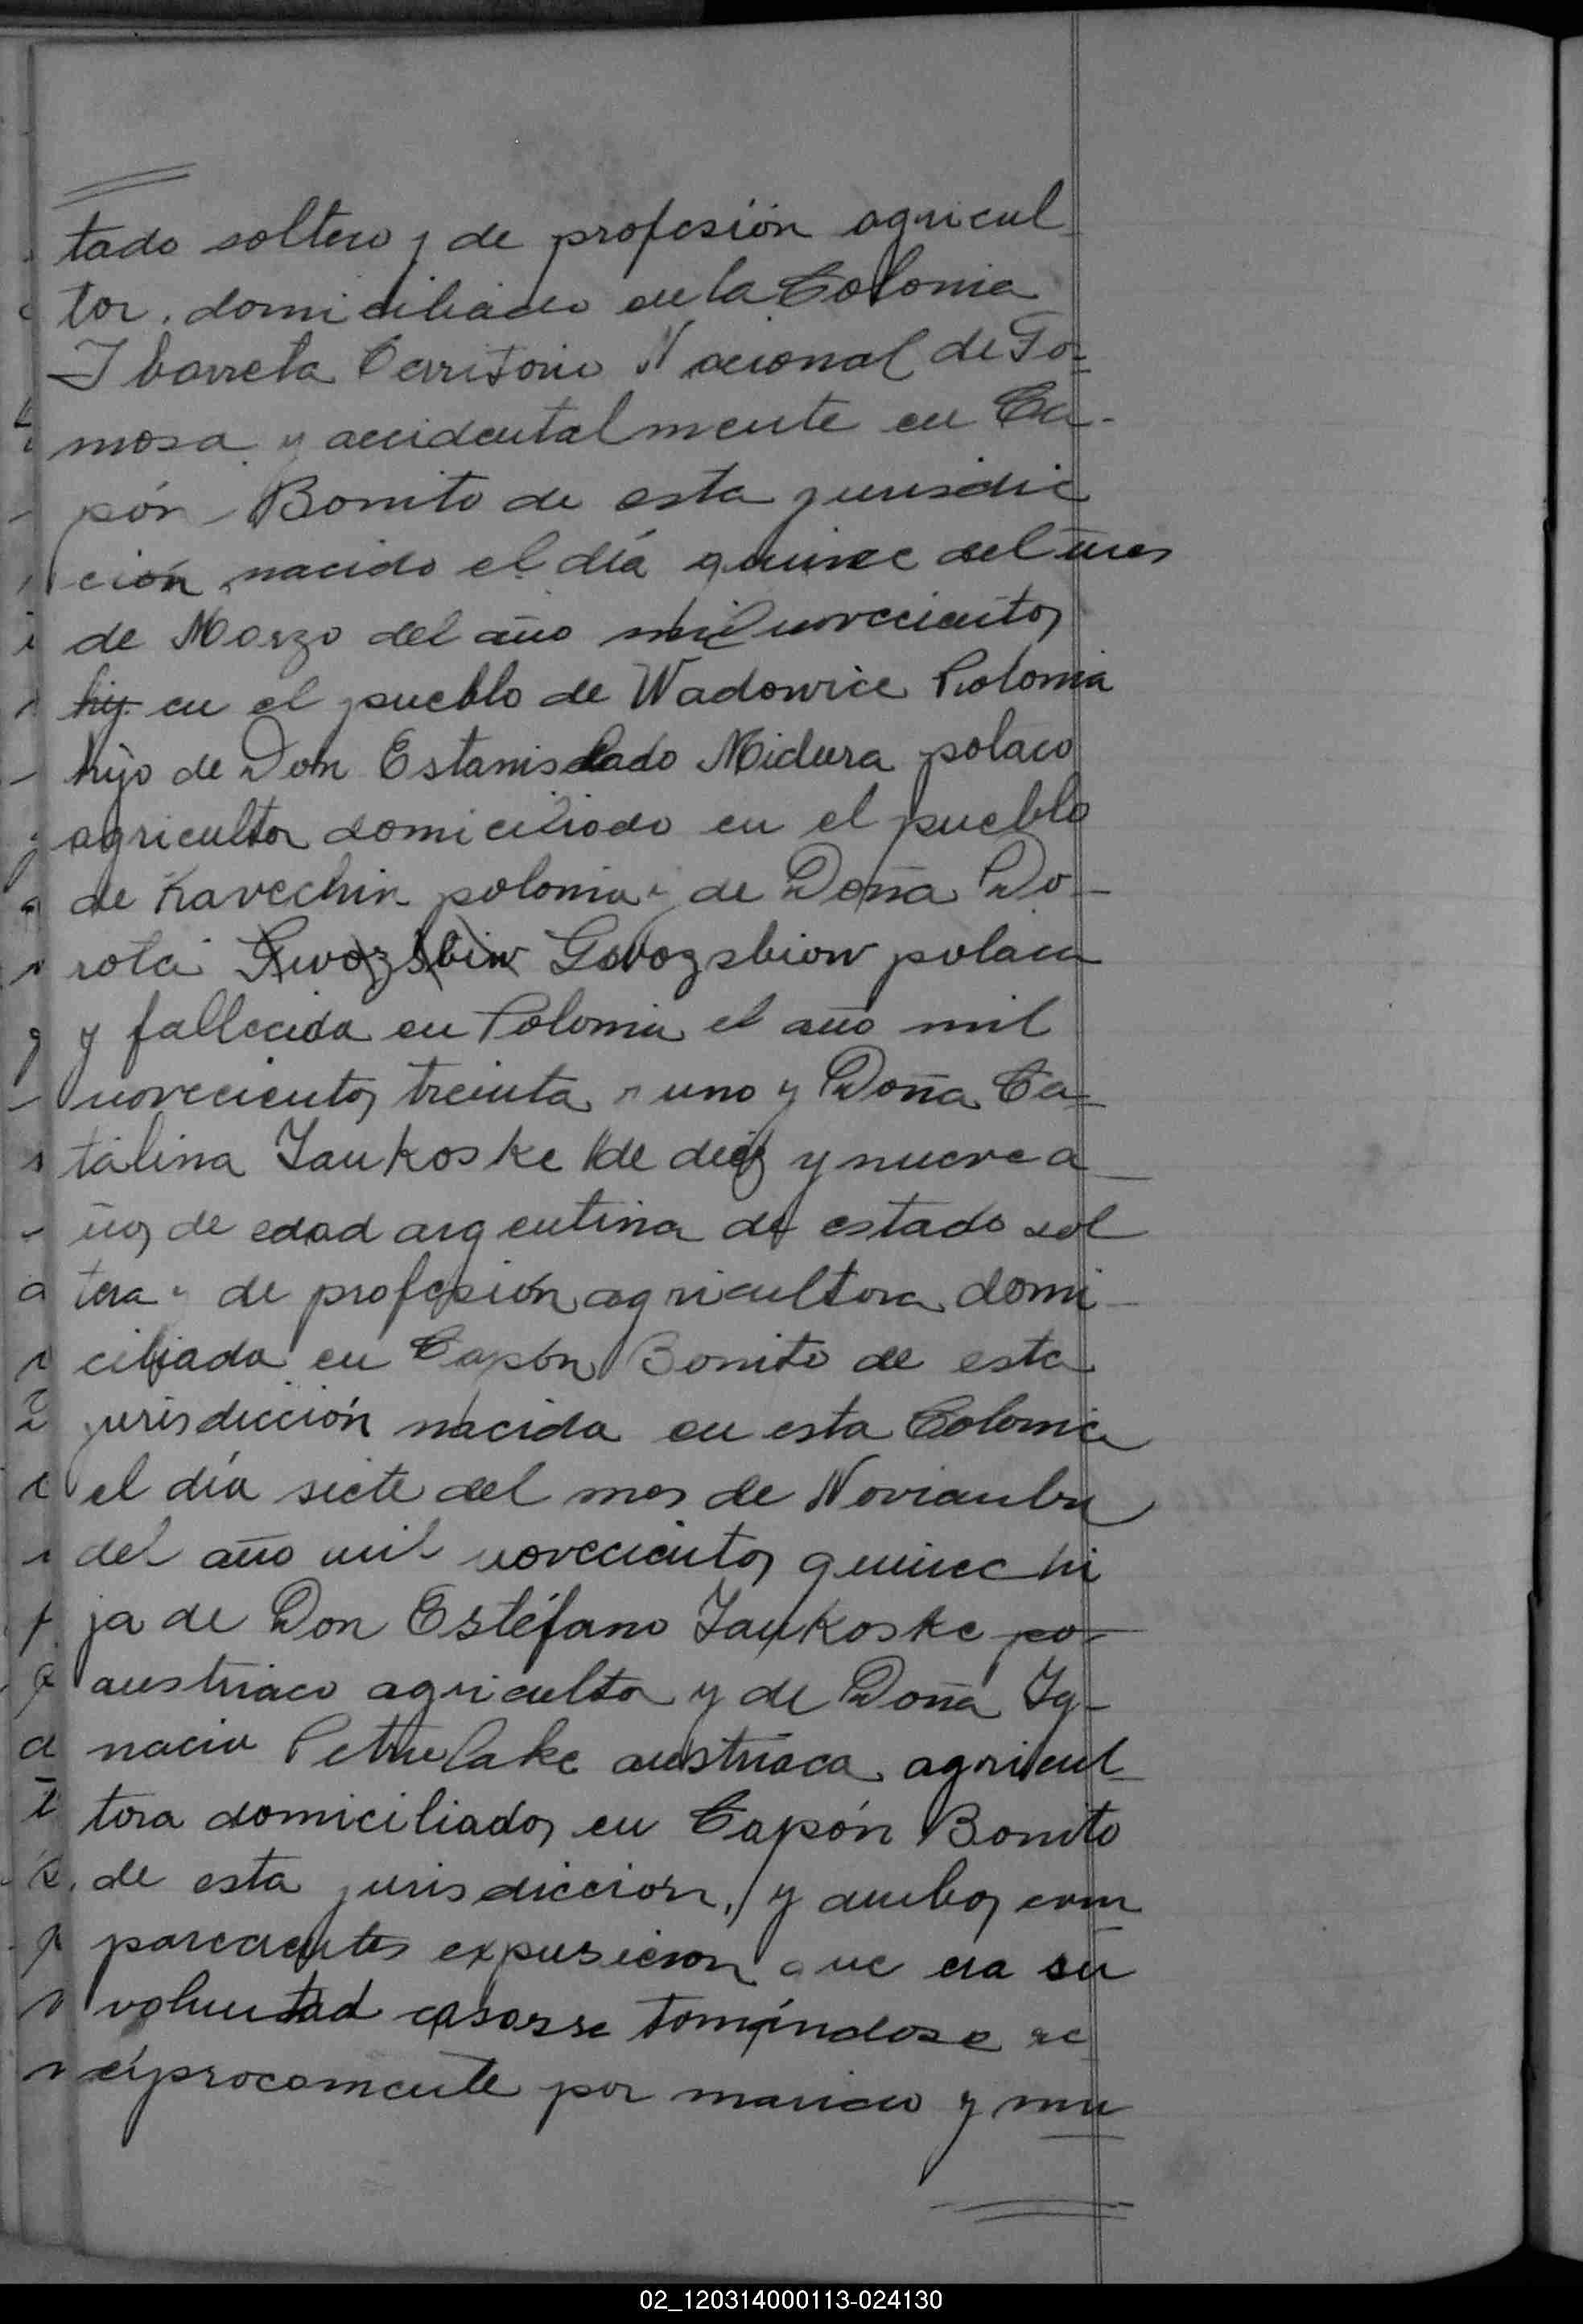 tado soltero y de profesión agricul
tor, domiciliado en la Colonia
Ibarreta Territorio Nacional de Fo-
mosa y accidentalmente en Ca-
pón Bonito de esta jurisdic
ción, nacido el día quince del mes
de Marzo del año mil novecientos
hij. en el pueblo de Wadowice Polonia
hijo de Don Estanislado Midura polaco
agricultor domiciliado en el pueblo
de Kavechin polonia y de Doña Do-
rota Gwozsbin Gwozsbiow polaca
y fallecida en Polonia el año mil
novecientos treinta y uno y Doña Ca-
talina Jaukoske de diez y nueve a
ños de edad argentina de estado sol
tera y de profesión agricultora domi-
ciliada en Capón Bonito de esta
jurisdicción nacida en esta Colonia
el día siete del mes de Noviembre
del año mil novecientos quince hi
ja de Don Estéfano Jaukoske po-
austriaco agricultor y de Doña Ig-
nacia Petrulake austriaca agricul
tora domiciliados en Capón Bonito
de esta jurisdicción, y ambos com
parecientes expusieron que era su
voluntad casarse tomándose re
cíprocamente por marido y mu
02_120314000113-024130